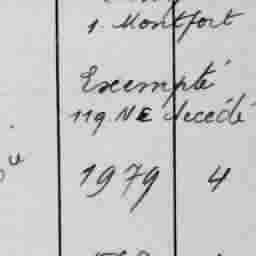 1. Montfort
Exempté
119 NE décédé
1979 4